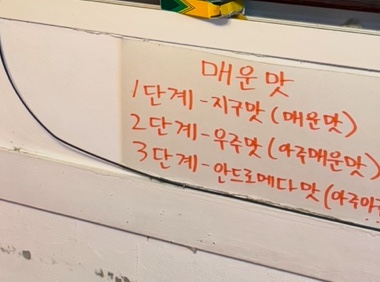 매운맛
1단계 - 지구맛 (매운맛)
2단계 - 우주맛 (아주매운맛)
3단계 - 안드로메다맛 (아주아